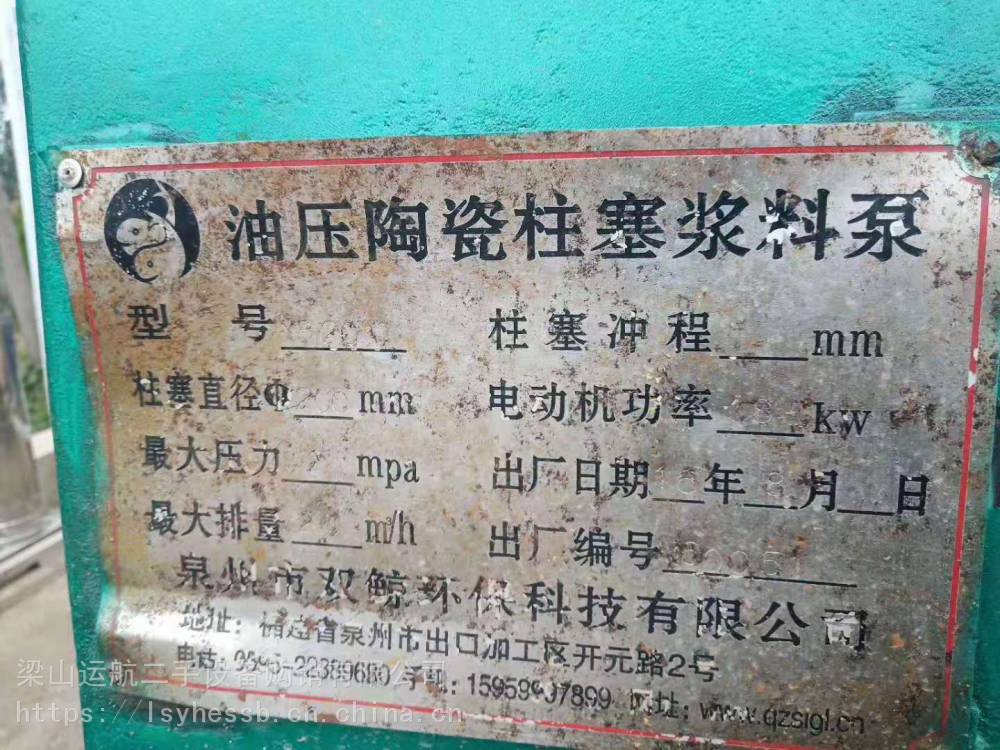 油压陶瓷柱塞浆料泵
型号 柱塞冲程 mm
柱塞直径Φ mm 电动机功率 kw
最大压力 mpa 出厂日期 年 月 日
最大排量 m³/h 出厂编号
泉州市双鲸环保科技有限公司
地址：福建省泉州市出口加工区开元路2号
电话：0595-22389680 手机： 网址：www.qzsjgl.cn
梁山运航二手设备购销有限公司
https://lsyhessb.cn.china.cn